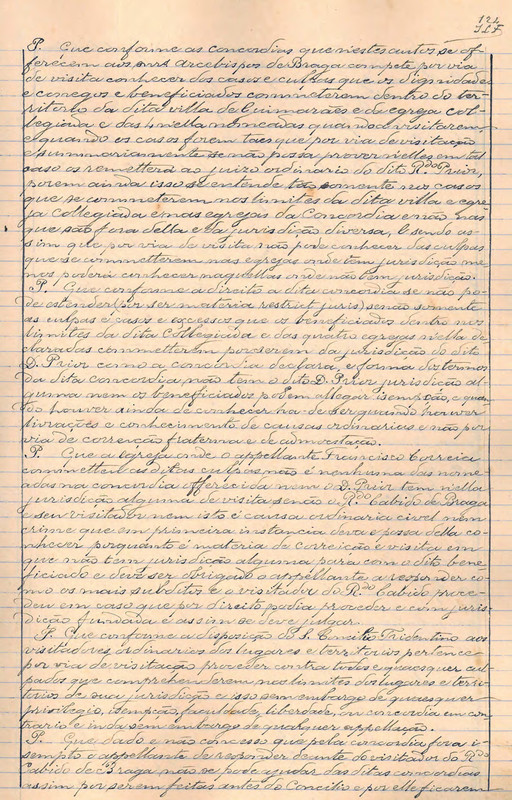 124
P. Que conforme as concordias que n'estes autos se of-
ferecem aos snrs Arcebispos de Braga compete por via
de visita conhecer dos casos e culpas que os dignidades
e conegos e beneficiados commeterem dentro do ter-
ritorio da dita villa de Guimarães e da egreja col-
legiada e das 4 n'ella nomeadas quando a visitarem
e quando os casos forem taes que por via de visitação
e summariamente se não possa prover n'elles em tal
caso os remetterá ao juizo ordinario do dito Rdo D. Prior,
porem ainda isso se entende tão somente nos casos
que se commeterem nos limites da dita villa e egre-
ja Collegiada e mais egrejas da Concordia e não nas
que são fora d'ella e da jurisdição diversa, e sendo as-
sim que por via de visita não pode conhecer das culpas
que se commetterem nas egrejas onde tem jurisdição me-
nos poderá conhecer naquellas onde não tem jurisdição.
P. Que conforme a direito a dita concordia se não po-
de estender (por ser materia restrict juris) senão somente
as culpas e casos e excessos que os beneficiados dentro nos
limites da dita Collegiada e das quatro egrejas n'ella de-
claradas commetterem por serem da jurisdição do dito
D. Prior como a concordia declara, e forma dos termos
da dita concordia não tem o dito D. Prior jurisdição al-
guma nem os beneficiados podem allegar isempção, e quan-
do houver ainda de conhecer ha-de ser quando houver
livrações e conhecimento de causas ordinarias e não por
via de correcção fraterna e de admoestação.
P. Que a egreja onde o appellante Francisco Correia
commetteu os ditas culpas não é nenhuma das nome-
adas na concordia offerecida nem o D. Prior tem n'ella
jurisdição alguma de visita senão o Rdo Cabido de Braga
e seu visitador nem isto é causa ordinaria civel nem
crime que em primeira instancia deva e possa d'ella co-
nhecer porquanto é materia de correição e visita em
que não tem jurisdição alguma para com o dito bene-
ficiado e deve ser obrigado o appellante a responder co-
mo os mais subditos e o visitador do Rdo Cabido proce-
deu em caso que por direito podia proceder e com juris-
dição fundada e assim se deve julgar.
P. Que conforme a disposição do S. Concilio Tridentino aos
visitadores ordinarios dos lugares e territorios pertence
por via de visitação proceder contra todos e quaesquer cul-
pados que comprehenderem nos limites dos lugares e terri-
torios de sua jurisdição e isso sem embargo de quaesquer
privilegio, isempção, faculdade, liberdade, ou concordia em con-
trario e inda sem embargo de qualquer appellação.
P. Que dado e não concesso que pela concordia fora i-
sempto o appellante de responder deante do visitador do Rdo
Cabido de Braga não se pode ajudar das ditas concordias
assim por serem feitas antes do Concilio e por elle ficarem